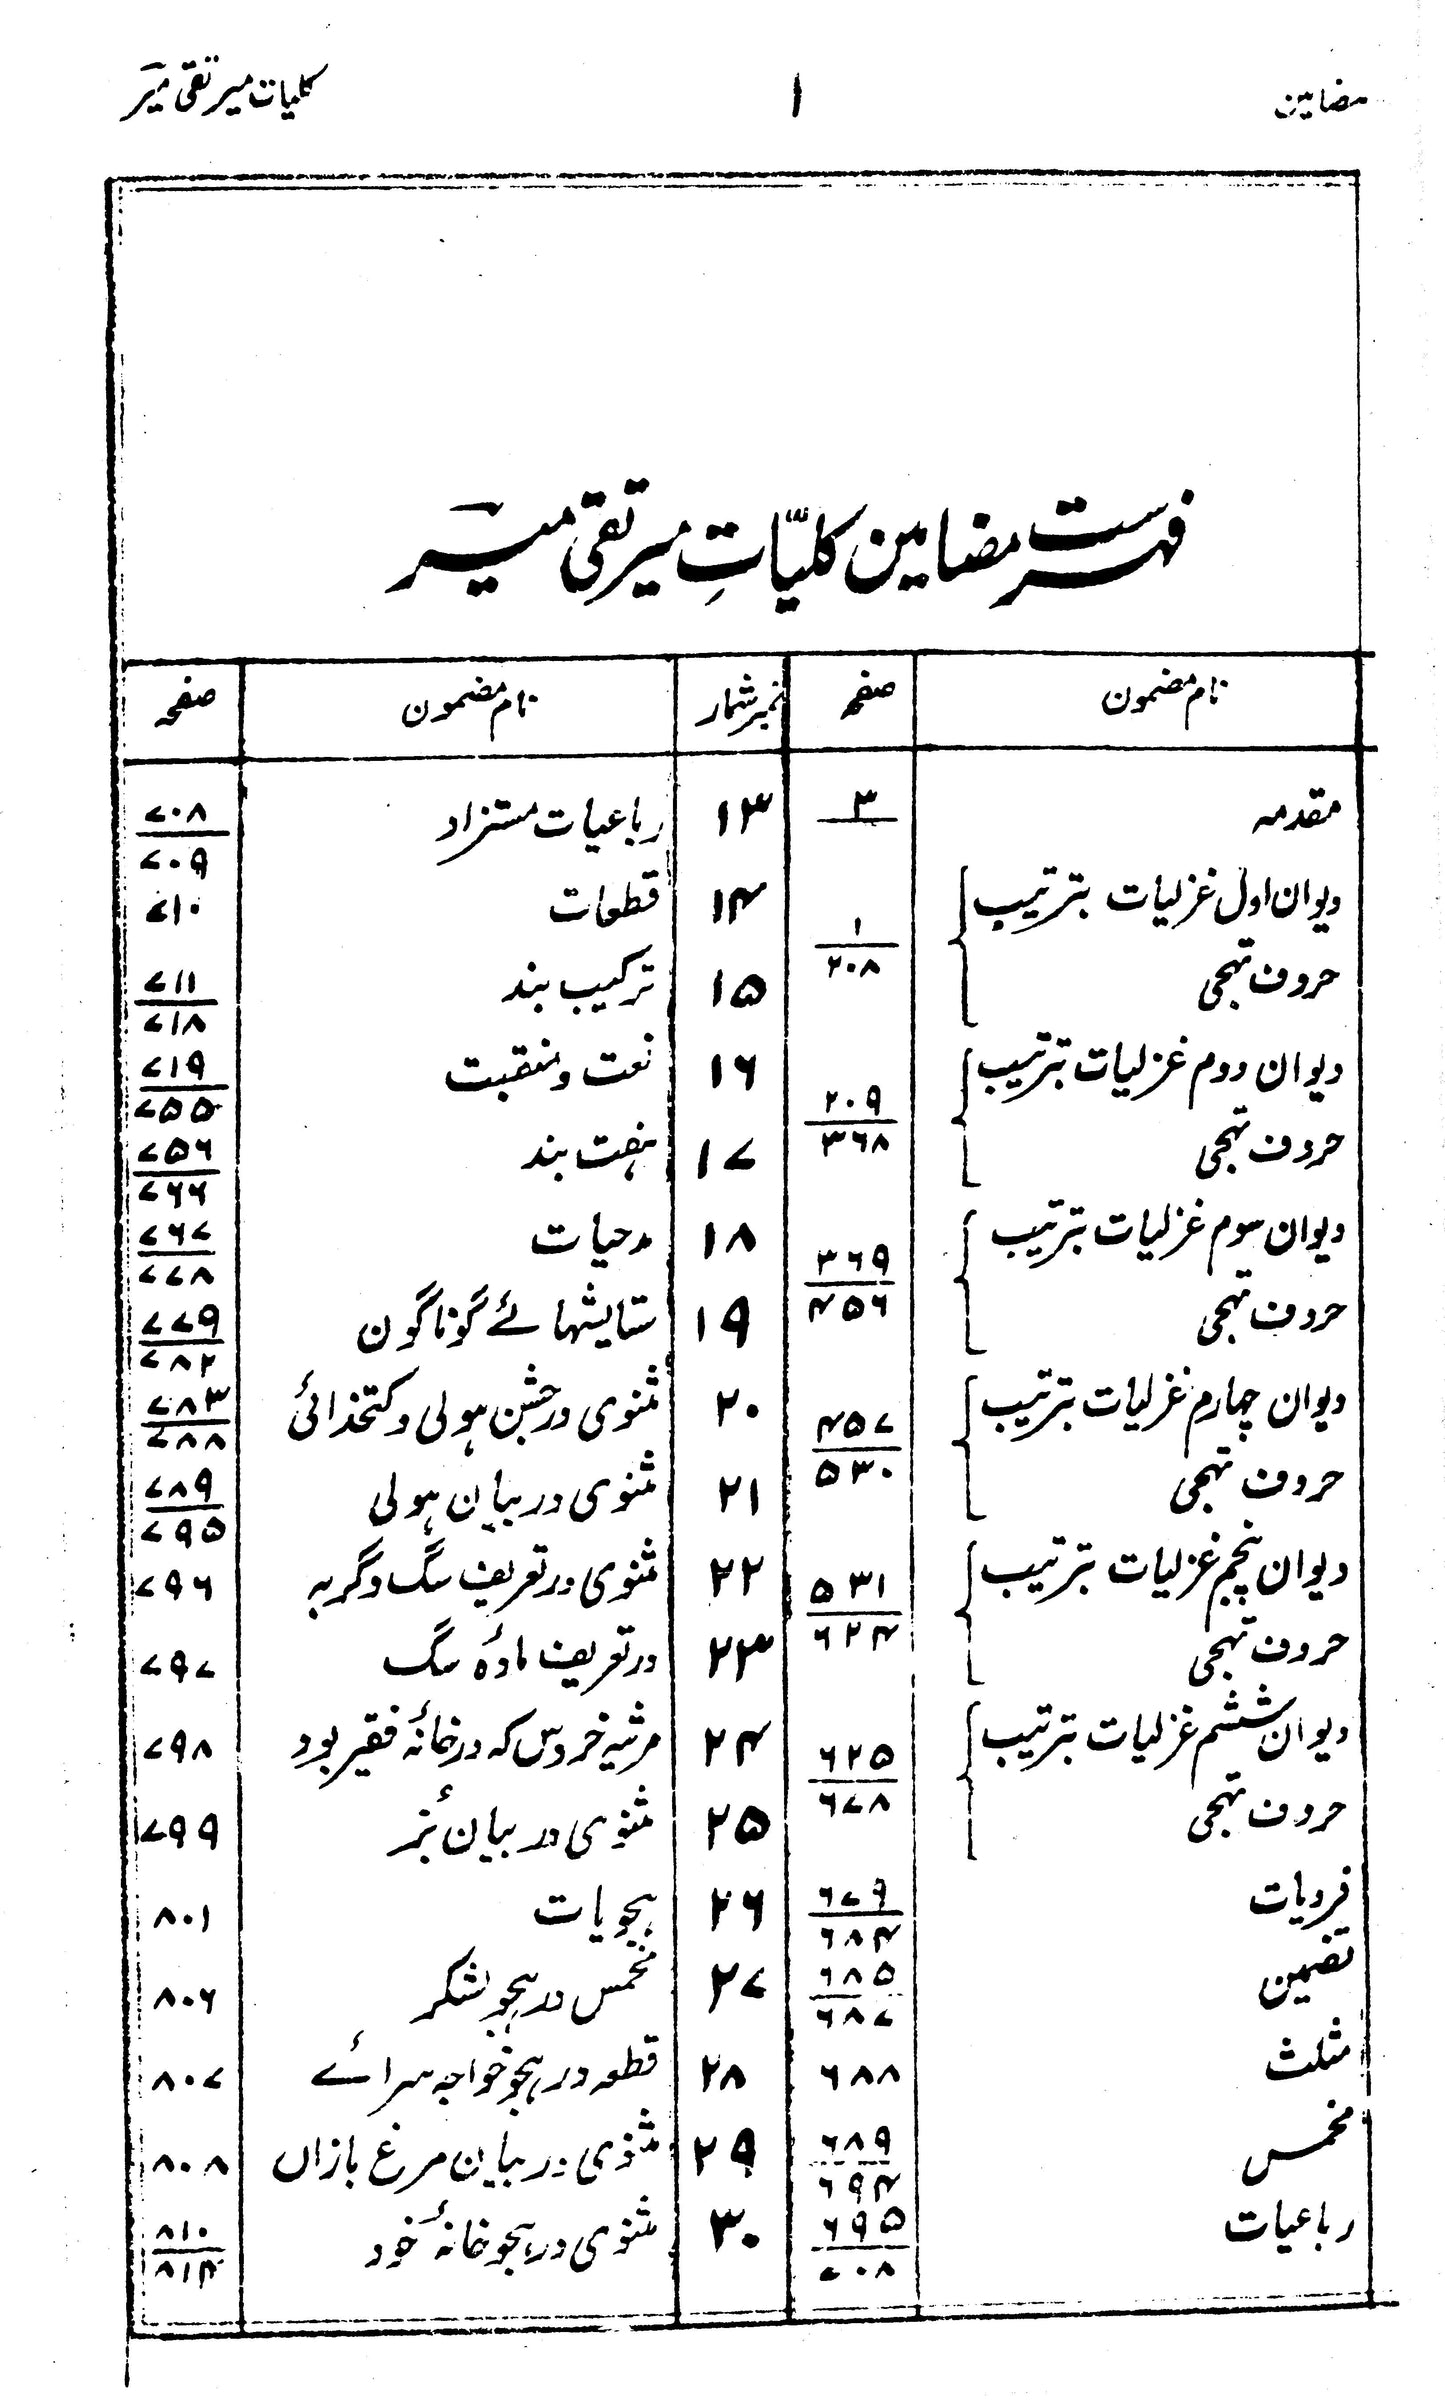 مضامین ۱ کلیات میر تقی میرؔ
فہرست مضامین کلیّاتِ میر تقی میرؔ
نام مضمون صفحہ نمبر شمار نام مضمون صفحہ
مقدمہ ۳ ۱۳ رباعیات مستزاد ۷۰۸/۷۰۹
دیوان اول غزلیات بترتیب ۱۴ قطعات ۷۱۰
حروف تہجی ۱/۲۰۸ ۱۵ ترکیب بند ۷۱۱/۷۱۸
دیوان دوم غزلیات بترتیب ۱۶ نعت و منقبت ۷۱۹/۷۵۵
حروف تہجی ۲۰۹/۳۶۸ ۱۷ ہفت بند ۷۵۶/۷۶۶
دیوان سوم غزلیات بترتیب ۱۸ مدحیات ۷۶۷/۷۷۸
حروف تہجی ۳۶۹/۴۵۶ ۱۹ ستایشہائے گوناگون ۷۷۹/۷۸۲
دیوان چہارم غزلیات بترتیب ۲۰ مثنوی در جشن ہولی و کتخدائی ۷۸۳/۷۸۸
حروف تہجی ۴۵۷/۵۳۰ ۲۱ مثنوی در بیان ہولی ۷۸۹/۷۹۵
دیوان پنجم غزلیات بترتیب ۲۲ مثنوی در تعریف سگ و گربہ ۷۹۶
حروف تہجی ۵۳۱/۶۲۴ ۲۳ در تعریف مادہٗ سگ ۷۹۷
دیوان ششم غزلیات بترتیب ۲۴ مرثیہ خروس کہ در خانہٴ فقیر بود ۷۹۸
حروف تہجی ۶۲۵/۶۷۸ ۲۵ مثنوی در بیان بُز ۷۹۹
فردیات ۶۷۹/۶۸۴ ۲۶ ہجویات ۸۰۱
تضمین ۶۸۵/۶۸۷ ۲۷ مخمس در ہجو لشکر ۸۰۶
مثلث ۶۸۸ ۲۸ قطعہ در ہجو خواجہ سرائے ۸۰۷
مخمس ۶۸۹/۶۹۴ ۲۹ مثنوی در بیان مرغ بازاں ۸۰۸
رباعیات ۶۹۵/۷۰۸ ۳۰ مثنوی در ہجو خانہٴ خود ۸۱۰/۸۱۴